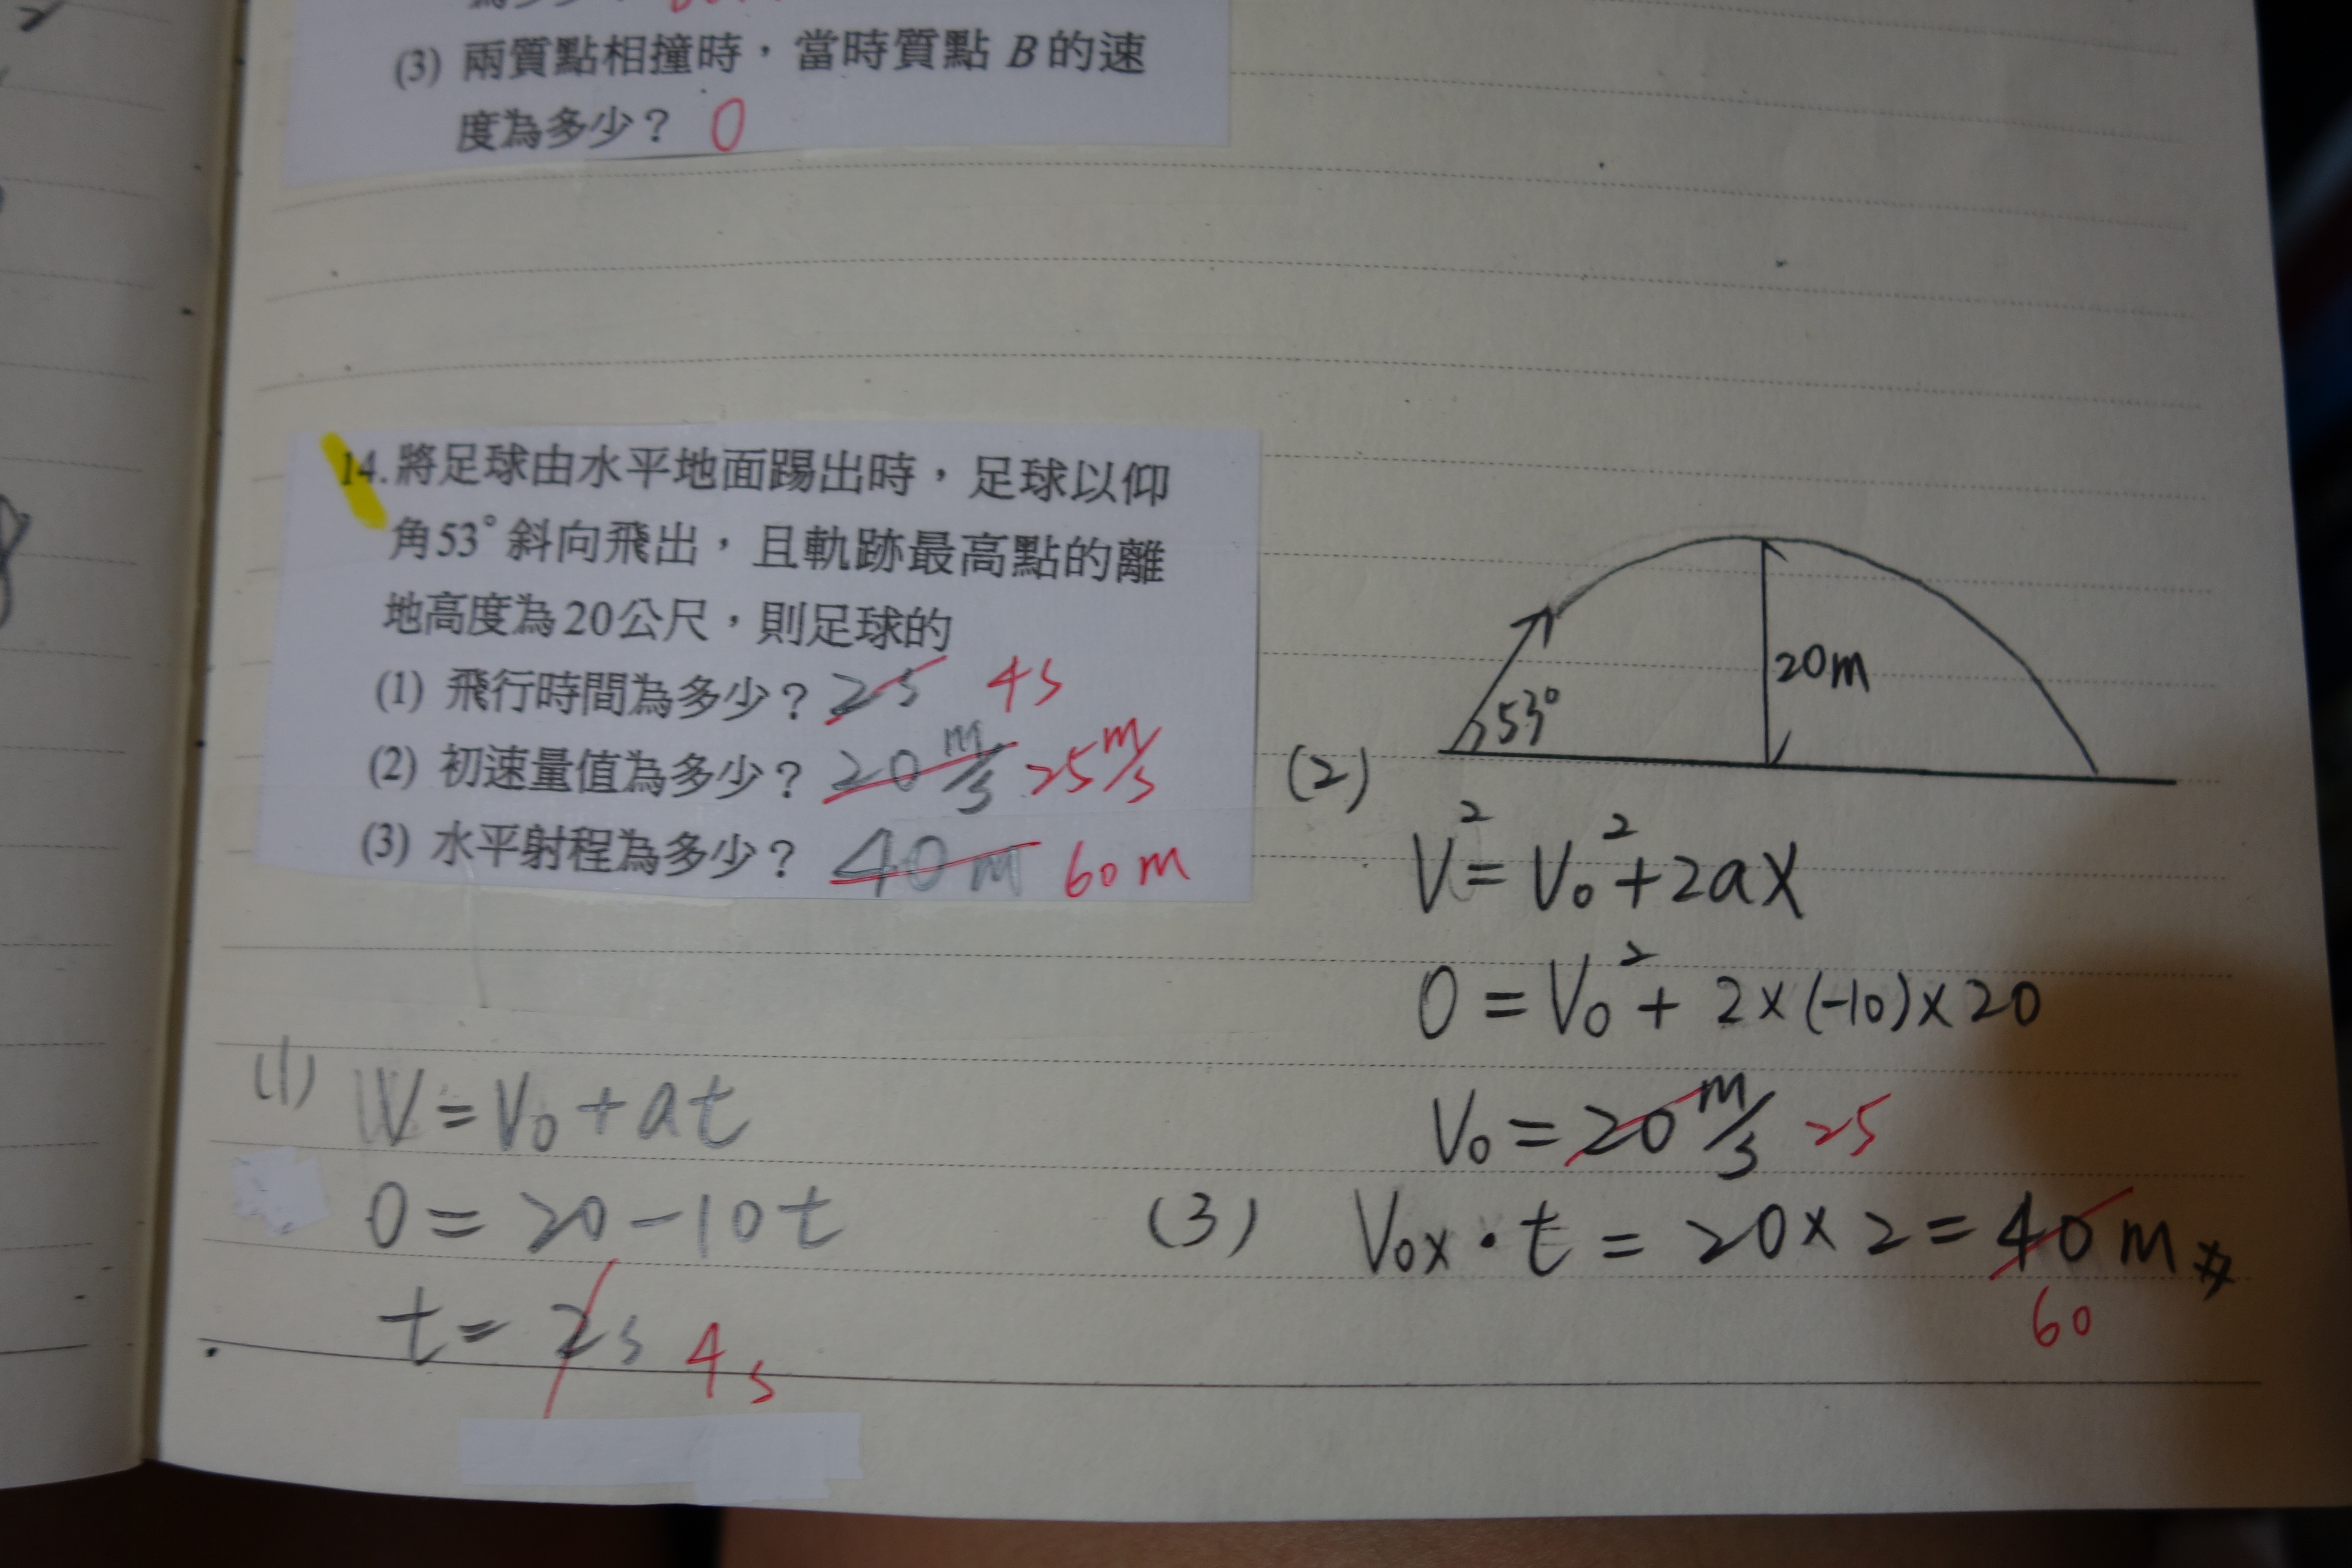 (3) 兩質點相撞時，當時質點 B 的速
度為多少？ 0
14. 將足球由水平地面踢出時，足球以仰
角53°斜向飛出，且軌跡最高點的離
地高度為20公尺，則足球的
(1) 飛行時間為多少？ 2s 4s
(2) 初速量值為多少？ 20 m/s 25 m/s
(3) 水平射程為多少？ 40 m 60 m
53°
20m
(2)
V² = V₀² + 2aX
0 = V₀² + 2×(-10)×20
V₀ = 20 m/s 25
(3) V₀ₓ · t = 20 × 2 = 40 m
60
(1) V = V₀ + at
0 = 20 - 10t
t = 2s 4s